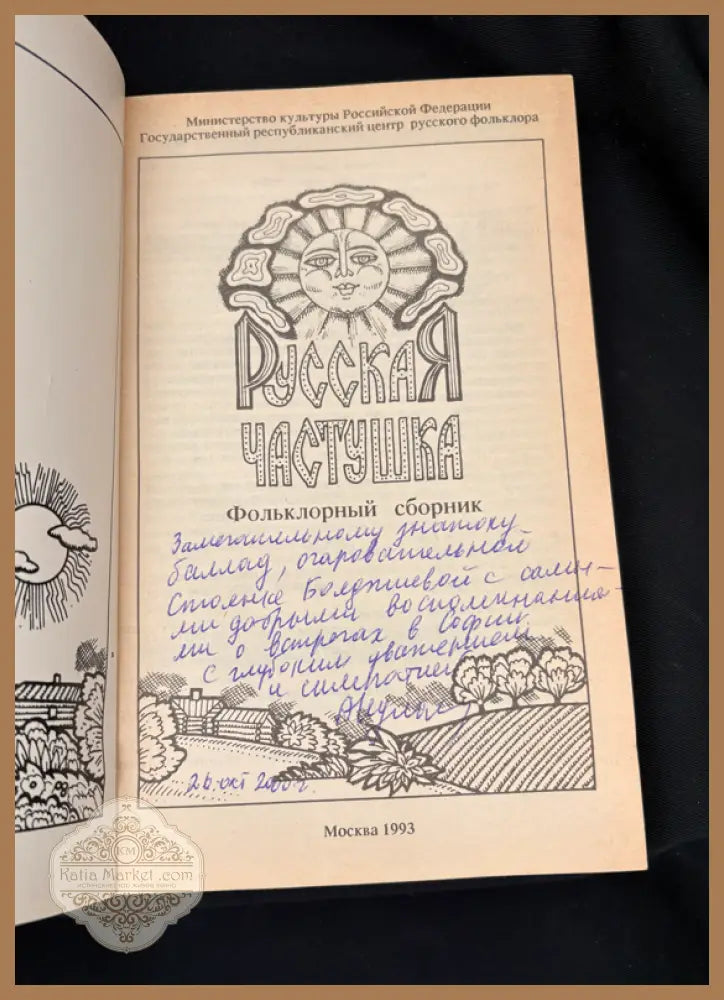 Министерство культуры Российской Федерации
Государственный республиканский центр русского фольклора
РУССКАЯ
ЧАСТУШКА
Фольклорный сборник
Замечательному знатоку
баллад, очаровательной
Стоянке Бояджиевой с самы-
ми добрыми воспоминания-
ми о встречах в Софии
с глубоким уважением
и симпатией
26 окт 2000 г.
Москва 1993
KM
Katia Market .com